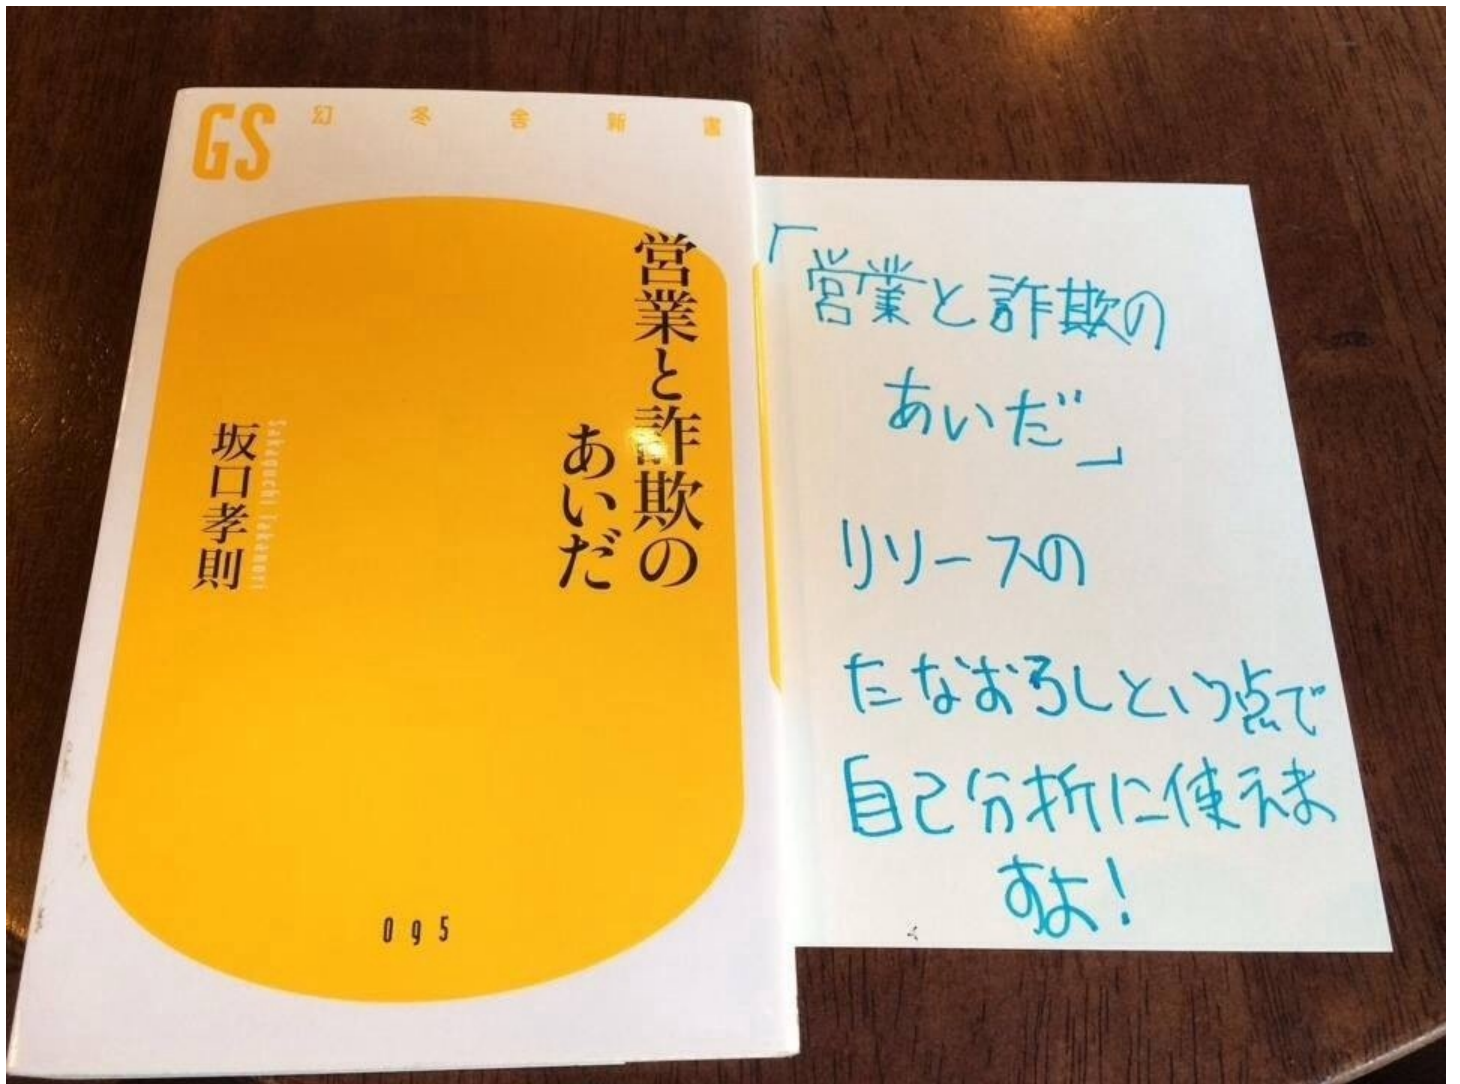 GS 幻冬舎新書
営業と詐欺の
あいだ
坂口孝則
Sakaguchi Takanori
095
「営業と詐欺の
あいだ」
リソースの
たなおろしという点で
自己分析に使えま
すよ!